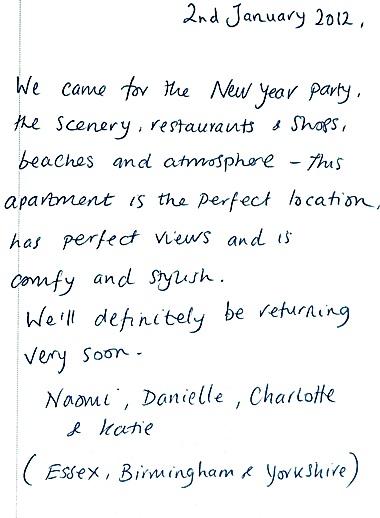 2nd January 2012,
We came for the New Year party,
the scenery, restaurants & shops,
beaches and atmosphere - this
apartment is the perfect location,
has perfect views and is
comfy and stylish.
We'll definitely be returning
very soon.
Naomi, Danielle, Charlotte
& Katie
(Essex, Birmingham & Yorkshire)